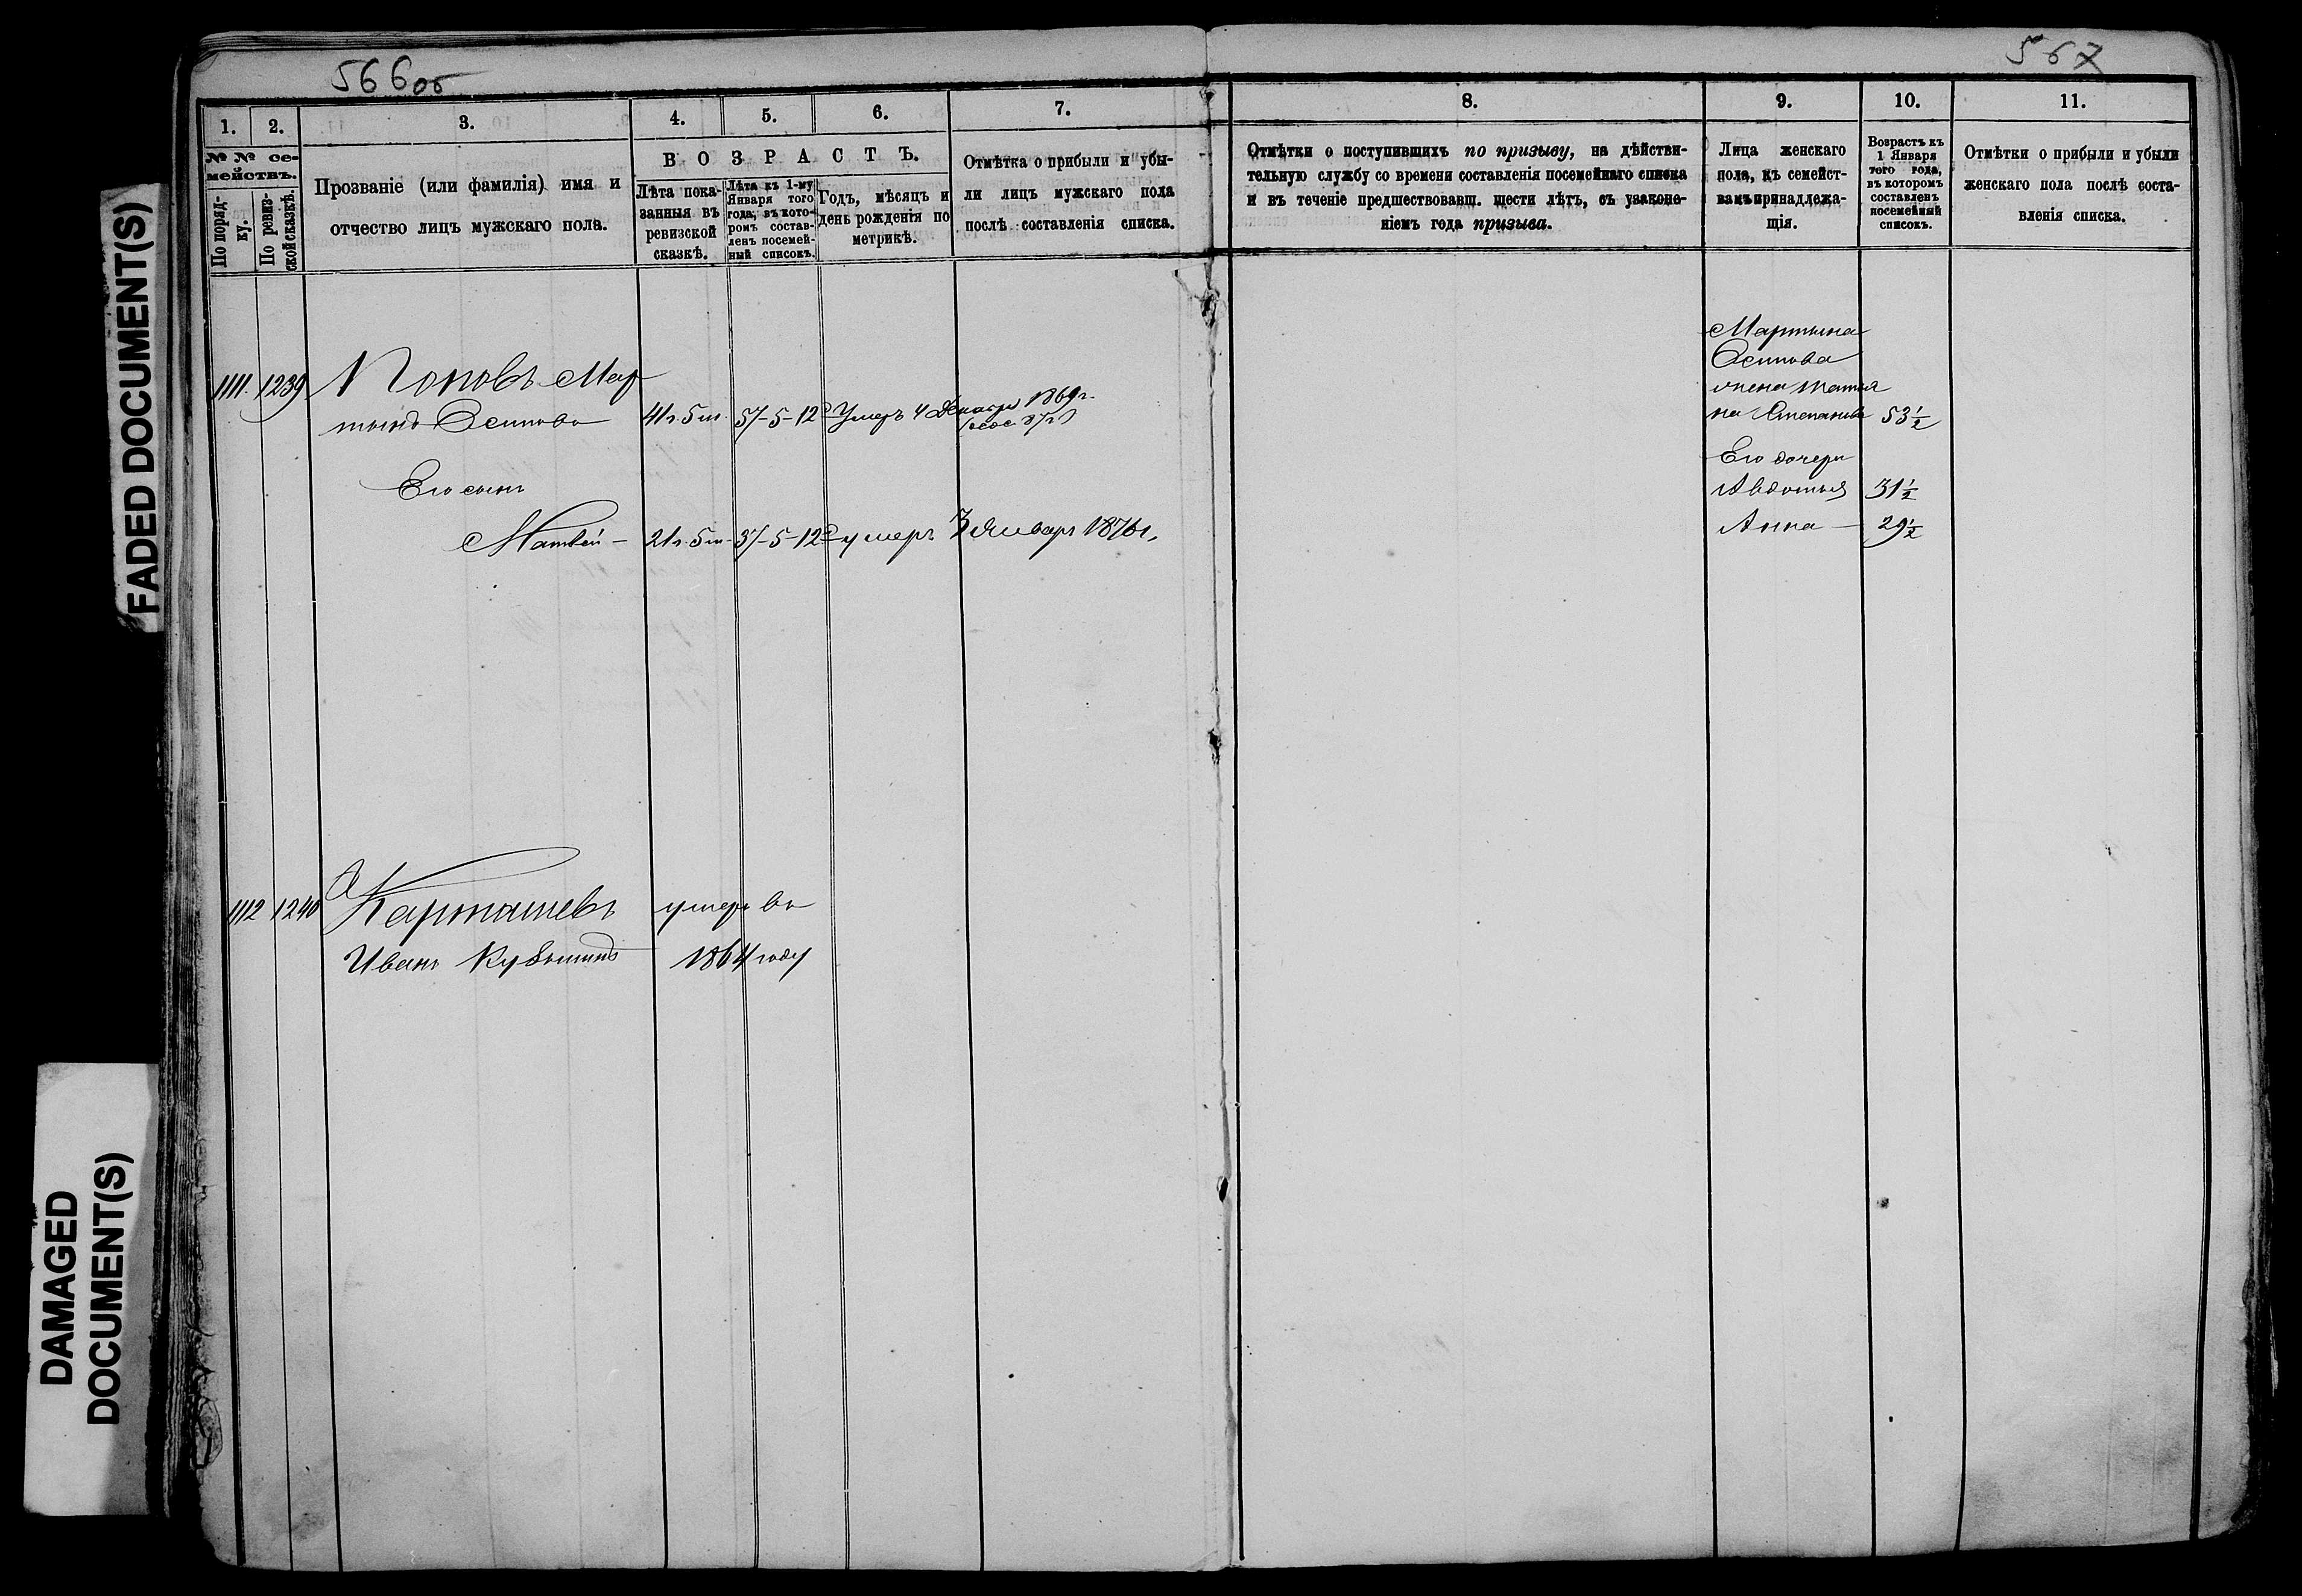 566об
567
1. 2. 3. 4. 5. 6. 7. 8. 9. 10. 11.
№ № се-
мействъ.
По поряд-
ку.
По ревиз-
ской сказкѣ.
Прозваніе (или фамилія) имя и
отчество лицъ мужскаго пола.
ВОЗРАСТЪ.
Лѣта пока-
занныя въ
ревизской
сказкѣ.
Лѣта къ 1-му
Января того
года, въ кото-
ромъ состав-
ленъ посемей-
ный списокъ.
Годъ, мѣсяцъ и
день рожденія по
метрикѣ.
Отмѣтка о прибыли и убы-
ли лицъ мужскаго пола
послѣ составленія списка.
Отмѣтки о поступившихъ по призыву, на дѣйстви-
тельную службу со времени составленія посемейнаго списка
и въ теченіе предшествовавш. шести лѣтъ, съ узаконе-
ніемъ года призыва.
Лица женскаго
пола, къ семейст-
вамъ принадлежа-
щія.
Возрастъ къ
1 Января
того года,
въ которомъ
составленъ
посемейный
списокъ.
Отмѣтки о прибыли и убыли
женскаго пола послѣ соста-
вленія списка.
1111. 1239 Поповъ Мар
тынъ Осиповъ 41г. 5м. 57-5-12 Умеръ 4 Декабря 1869г.
Его сынъ
Матвѣй - 21г. 5м - 37-5-12 умеръ 3 Января 1876г.
Мартына
Осипова
жена Татья
на Степанова 53½
Его дочери
Авдотья 31½
Анна — 29½
1112 1240 Карташевъ умеръ въ
Иванъ 1864 году
FADED DOCUMENT(S)
DAMAGED
DOCUMENT(S)